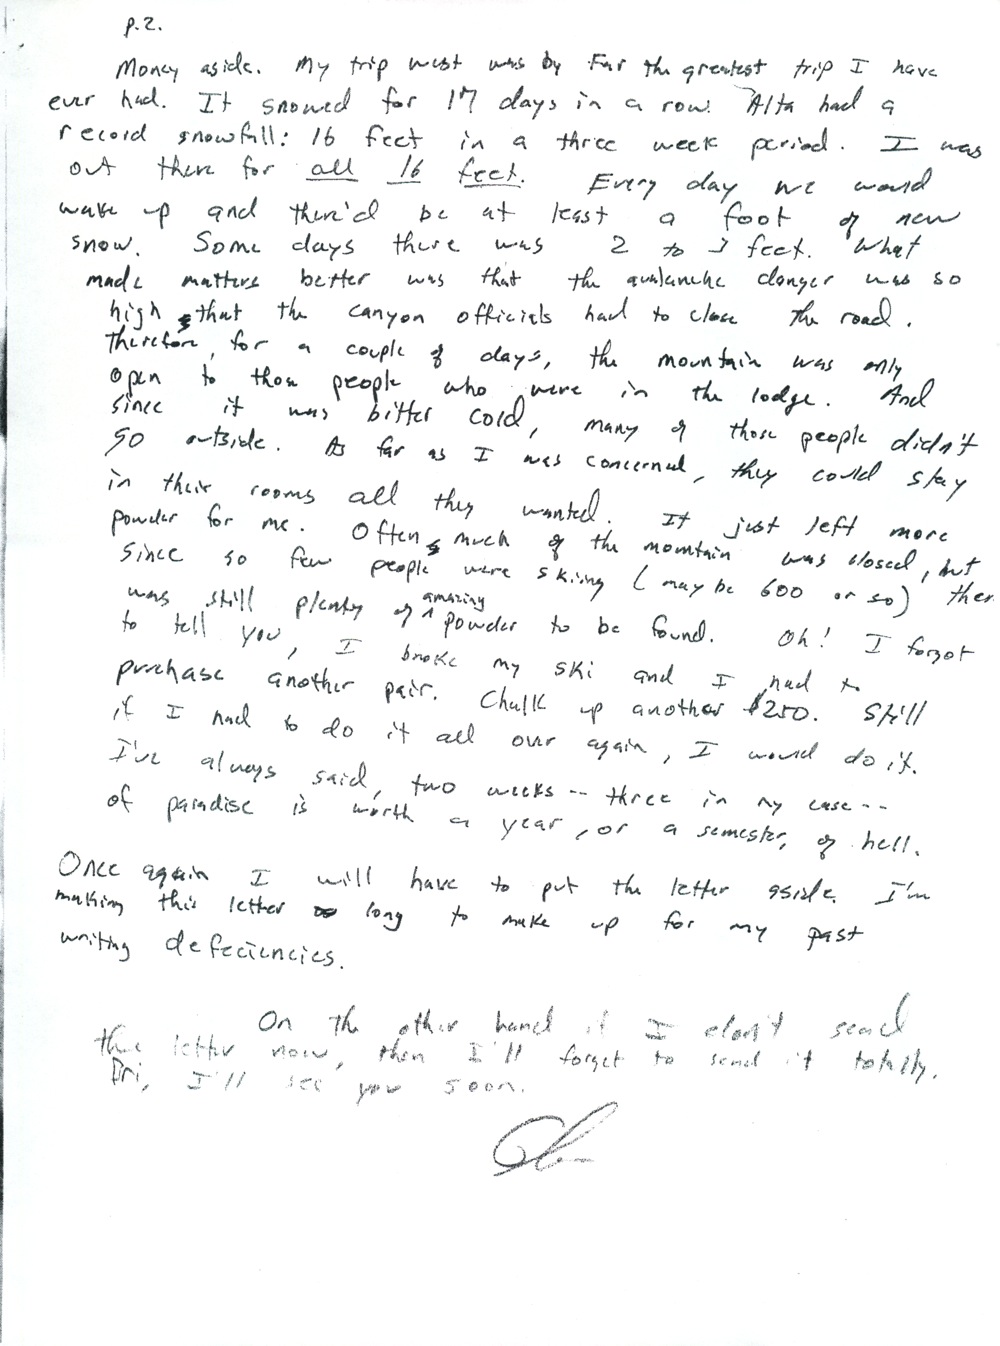 p.2.
Money aside. My trip west was by Far the greatest trip I have
ever had. It snowed for 17 days in a row! Alta had a
record snowfall: 16 feet in a three week period. I was
out there for all 16 feet. Every day we would
wake up and there'd be at least a foot of new
snow. Some days there was 2 to 3 feet. What
made matters better was that the avalanche danger was so
high that the canyon officials had to close the road.
Therefore, for a couple of days, the mountain was only
open to those people who were in the lodge. And
since it was bitter cold, many of those people didn't
go outside. As far as I was concerned, they could stay
in their rooms all they wanted. It just left more
powder for me. Often much of the mountain was closed, but
since so few people were skiing (maybe 600 or so) ther
was still plenty of amazing powder to be found. Oh! I forgot
to tell you, I broke my ski and I had to
purchase another pair. Chalk up another $250. Still
if I had to do it all over again, I would do it.
I've always said, two weeks -- three in my case --
of paradise is worth a year, or a semester, of hell.
Once again I will have to put the letter aside. I'm
making this letter long to make up for my past
writing defeciencies.
On the other hand if I don't send
this letter now, then I'll forget to send it totally.
Bri, I'll see you soon.